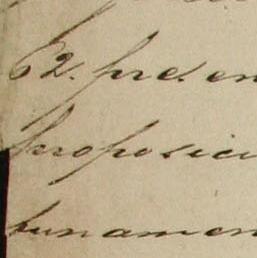 62. presen
proposici
tunamen